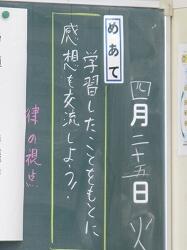 四月二十五日 火
めあて
学習したことをもとに
感想を交流しよう!
律の視点